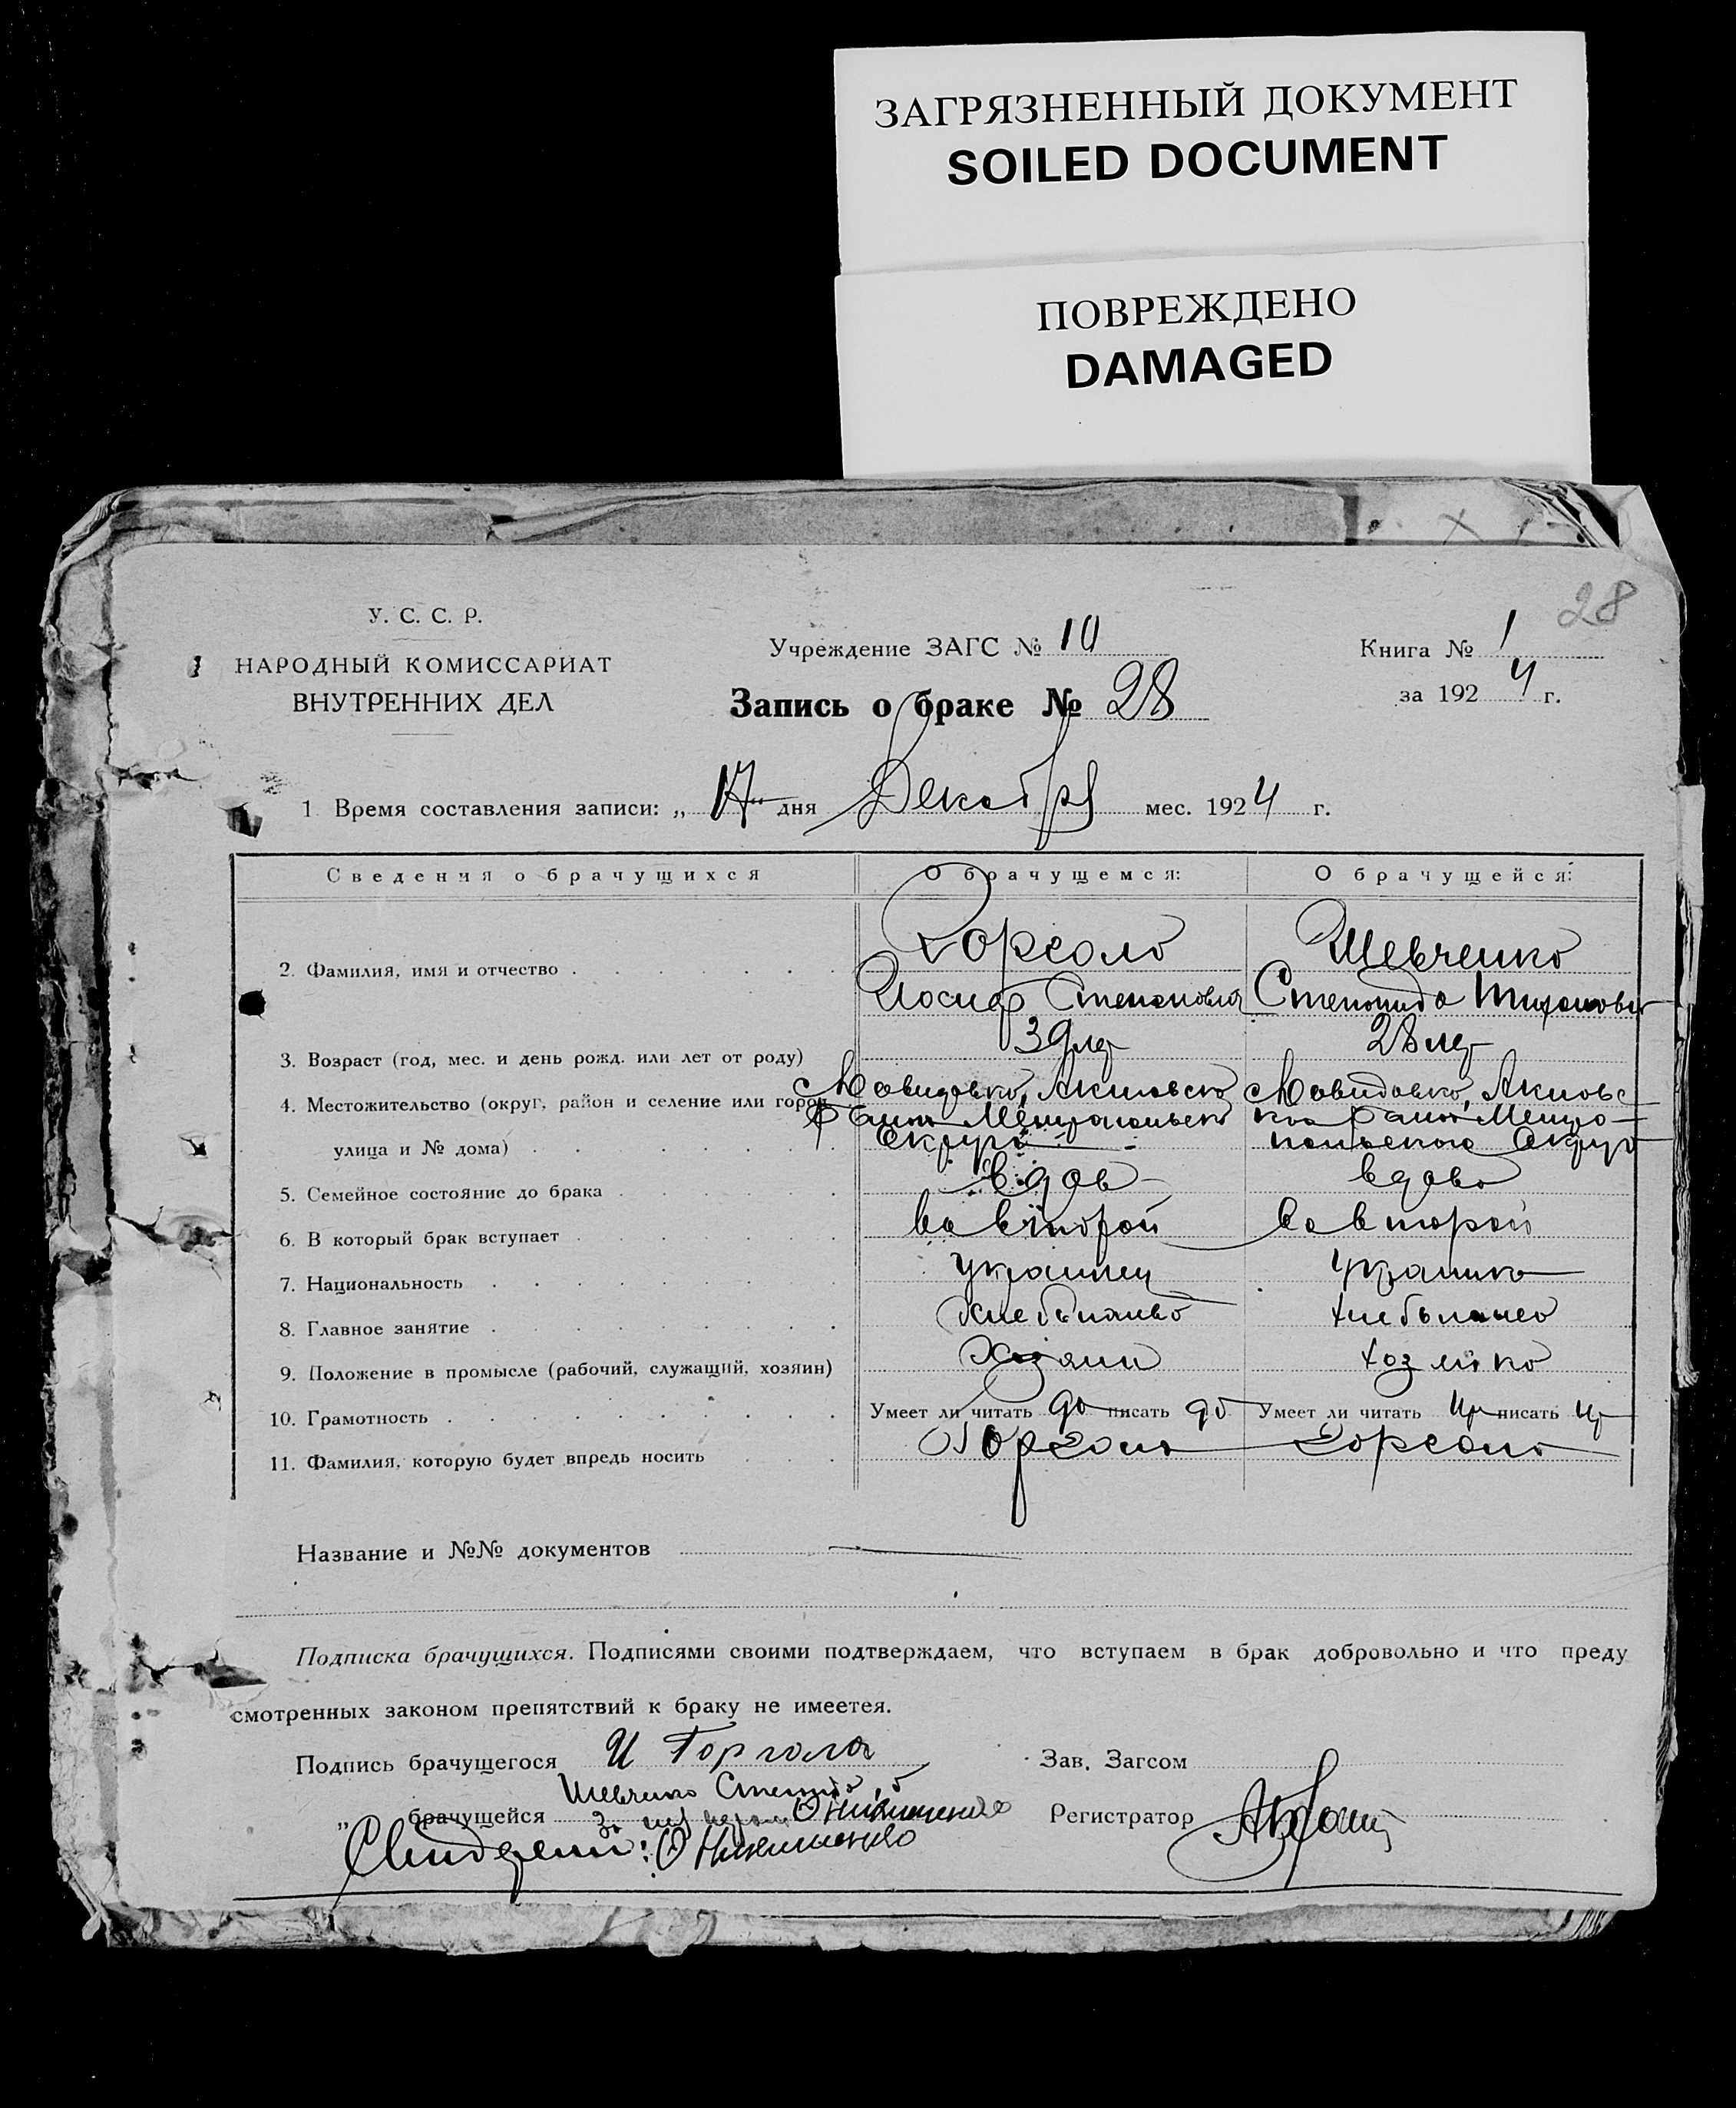 ЗАГРЯЗНЕННЫЙ ДОКУМЕНТ
SOILED DOCUMENT
ПОВРЕЖДЕНО
DAMAGED
28
У. С. С. Р.
НАРОДНЫЙ КОМИССАРИАТ
ВНУТРЕННИХ ДЕЛ
Учреждение ЗАГС № 10
Книга № 1
Запись о браке № 28
за 1924 г.
1 Время составления записи: „ 17 " дня Декабря мес. 1924 г.
Сведения о брачущихся О брачущемся: О брачущейся:
2. Фамилия, имя и отчество Горголь Шевченко
Иосиф Степанович Степанида
3. Возраст (год, мес. и день рожд. или лет от роду) 39 лет 28 лет
4. Местожительство (округ, район и селение или город, Давидовка, Акимовск Давидовка, Акимовс
улица и № дома) Район Мелитопольск кий Район Мелито-
Округа польского Округа
5. Семейное состояние до брака вдов вдова
6. В который брак вступает во второй во второй
7. Национальность украинец украинка
8. Главное занятие хлебопашество хлебопашество
9. Положение в промысле (рабочий, служащий, хозяин) Хозяин хозяйка
10. Грамотность Умеет ли читать да писать да Умеет ли читать нет писать нет
11. Фамилия, которую будет впредь носить
Название и №№ документов
Подписка брачущихся. Подписями своими подтверждаем, что вступаем в брак добровольно и что преду
смотренных законом препятствий к браку не имеетея.
Подпись брачущегося И Горгола Зав. Загсом
Шевченко
„ брачущейся За Регистратор
Свидетели: